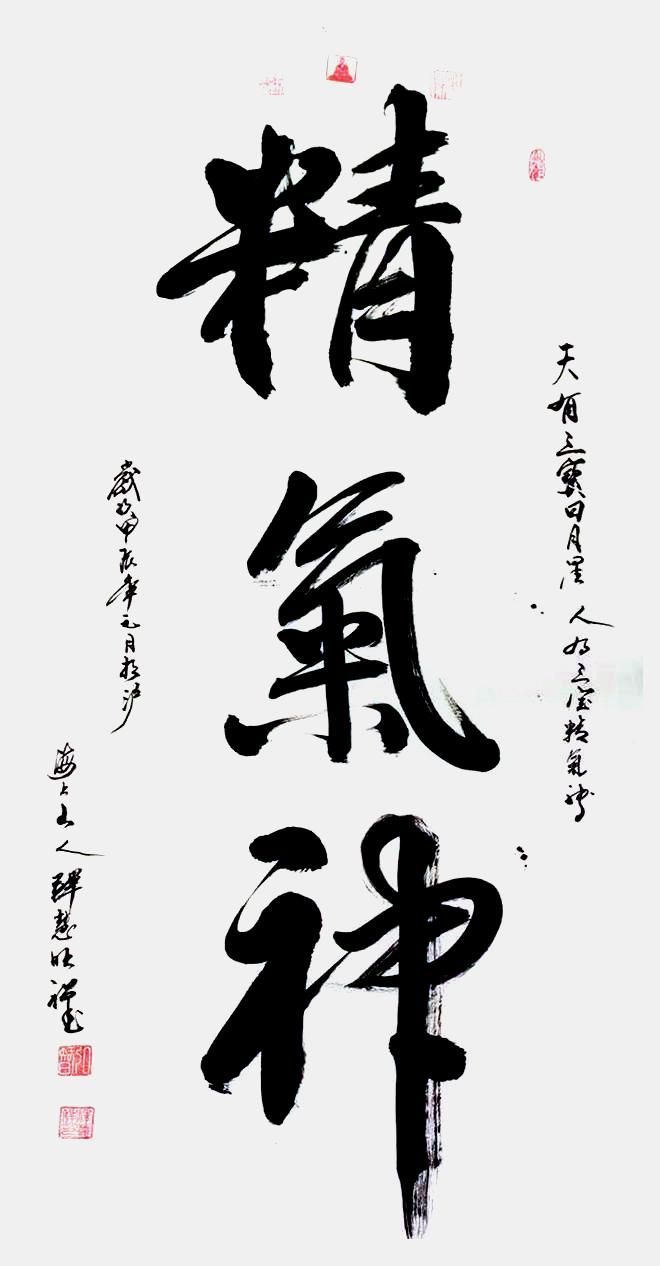 精氣神
天有三寶日月星 人有三寶精氣神
歲在甲辰年元月於沪
海上山人釋慧